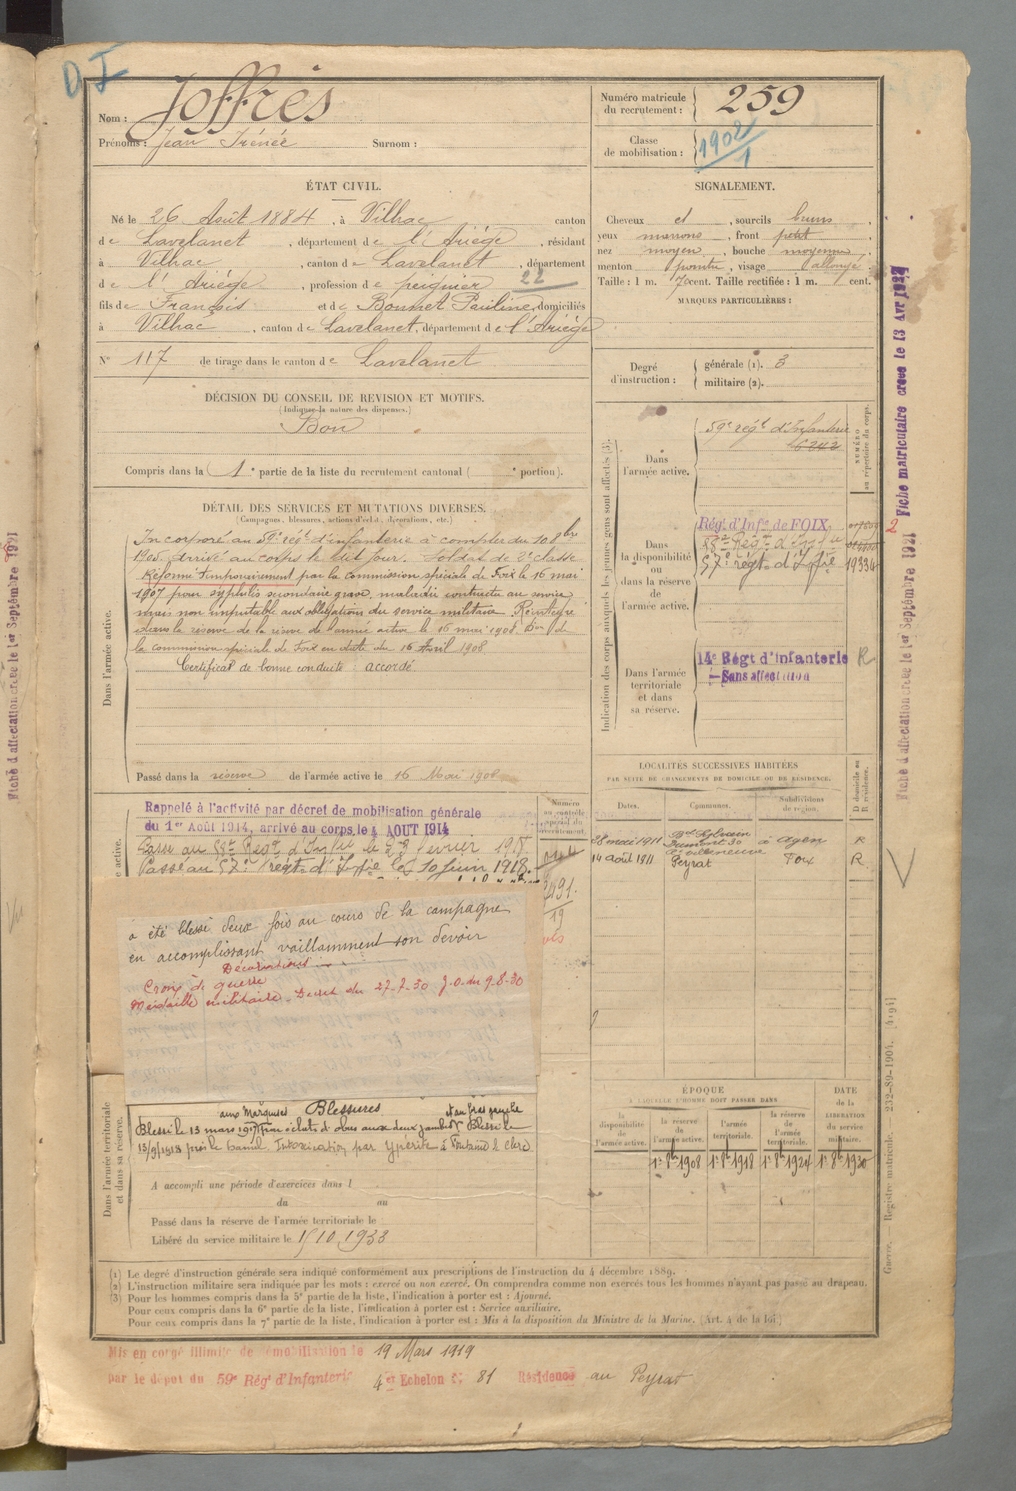 D I
Nom : Joffrès
Prénoms : Jean Irénée Surnom :
Numéro matricule du recrutement : 259
Classe de mobilisation : 1902/1
ÉTAT CIVIL.
Né le 26 Août 1884, à Vilhac canton
de Lavelanet, département de l'Ariège, résidant
à Vilhac, canton de Lavelanet, département
de l'Ariège, profession de peignier 22
fils de François et de Bonnet Pauline, domiciliés
à Vilhac, canton de Lavelanet, département de l'Ariège
N° 117 de tirage dans le canton de Lavelanet
SIGNALEMENT.
Cheveux et, sourcils bruns,
yeux marrons, front petit,
nez moyen, bouche moyenne,
menton pointu, visage allongé
Taille : 1 m. 7 cent. Taille rectifiée : 1 m. cent.
MARQUES PARTICULIÈRES :
Degré d'instruction : générale (1). 3
militaire (2).
DÉCISION DU CONSEIL DE REVISION ET MOTIFS.
(Indiquer la nature des dispenses.)
Bon
Compris dans la 1e partie de la liste du recrutement cantonal ( e portion).
DÉTAIL DES SERVICES ET MUTATIONS DIVERSES.
(Campagnes, blessures, actions d'éclat, décorations, etc.)
Dans l'armée active.
Incorporé au 59e régt d'infanterie à compter du 10 8bre
1905. Arrivé au corps le dit jour. Soldat de 2e classe
Réformé temporairement par la commission spéciale de Foix le 16 mai
1907 pour syphilis secondaire grave, maladie contractée au service
mais non imputable aux obligations du service militaire. Réintégré
dans la réserve de l'armée active le 16 mai 1908. de
la commission spéciale de Foix en date du 16 Avril 1908
Certificat de bonne conduite : accordé
Passé dans la réserve de l'armée active le 16 Mai 1908
Indication des corps auxquels les jeunes gens sont affectés (3).
NUMÉRO au répertoire du corps.
Dans l'armée active.
59e régt d'Infanterie
6242
Dans la disponibilité ou dans la réserve de l'armée active.
Régt d'Infie de FOIX.
88e Régt d'Infie
57e régt d'Infie 19334
2
Dans l'armée territoriale et dans sa réserve.
14e Régt d'infanterie R
Sans affectation
LOCALITÉS SUCCESSIVES HABITÉES
PAR SUITE DE CHANGEMENTS DE DOMICILE OU DE RÉSIDENCE.
Dates. Communes. Subdivisions de région. D domicile ou R résidence.
28 mai 1911 Bd Sylvain Dumont 30 à Agen R
14 août 1911 Peyrat Foix R
Rappelé à l'activité par décret de mobilisation générale
du 1er Août 1914, arrivé au corps le 4 AOUT 1914
Passé au 88e Régt d'Infie le 23 février 1915.
Passé au 57e régt d'Infie le 10 juin 1918.
a été blessé deux fois au cours de la campagne
en accomplissant vaillamment son devoir
Décorations
Croix de guerre
Médaille militaire. Décret du 27-7-30 J.O. du 9-8-30
Dans l'armée territoriale et dans sa réserve.
Blessures
aux Marquises et au bras gauche
Blessé le 15 mars 1917 par éclats d'obus aux deux jambes Blessé le
13/9/1918 Intoxication par Ypérite à
A accompli une période d'exercices dans l
du au
Passé dans la réserve de l'armée territoriale le
Libéré du service militaire le 15/10/1933
ÉPOQUE
À LAQUELLE L'HOMME DOIT PASSER DANS
DATE de la LIBÉRATION du service militaire.
la disponibilité de l'armée active. la réserve de l'armée active. l'armée territoriale. la réserve de l'armée territoriale.
1er 8bre 1908 1er 8bre 1918 1er 8bre 1924 1er 8bre 1930
(1) Le degré d'instruction générale sera indiqué conformément aux prescriptions de l'instruction du 4 décembre 1889.
(2) L'instruction militaire sera indiquée par les mots : exercé ou non exercé. On comprendra comme non exercés tous les hommes n'ayant pas passé au drapeau.
(3) Pour les hommes compris dans la 5e partie de la liste, l'indication à porter est : Ajourné.
Pour ceux compris dans la 6e partie de la liste, l'indication à porter est : Service auxiliaire.
Pour ceux compris dans la 7e partie de la liste, l'indication à porter est : Mis à la disposition du Ministre de la Marine. (Art. 4 de la loi.)
Mis en congé illimité de démobilisation le 19 Mars 1919
par le dépôt du 59e Régt d'Infanterie 4e Echelon N° 81 Résidence au Peyrat
Fiche matriculaire créée le 13 Avr 1927
Fiche d'affectation créée le 1er Septembre 1921
Fiche d'affectation créée le 1er Septembre 1921
Guerre. — Registre matricule. — 232-89-1904. [4194]